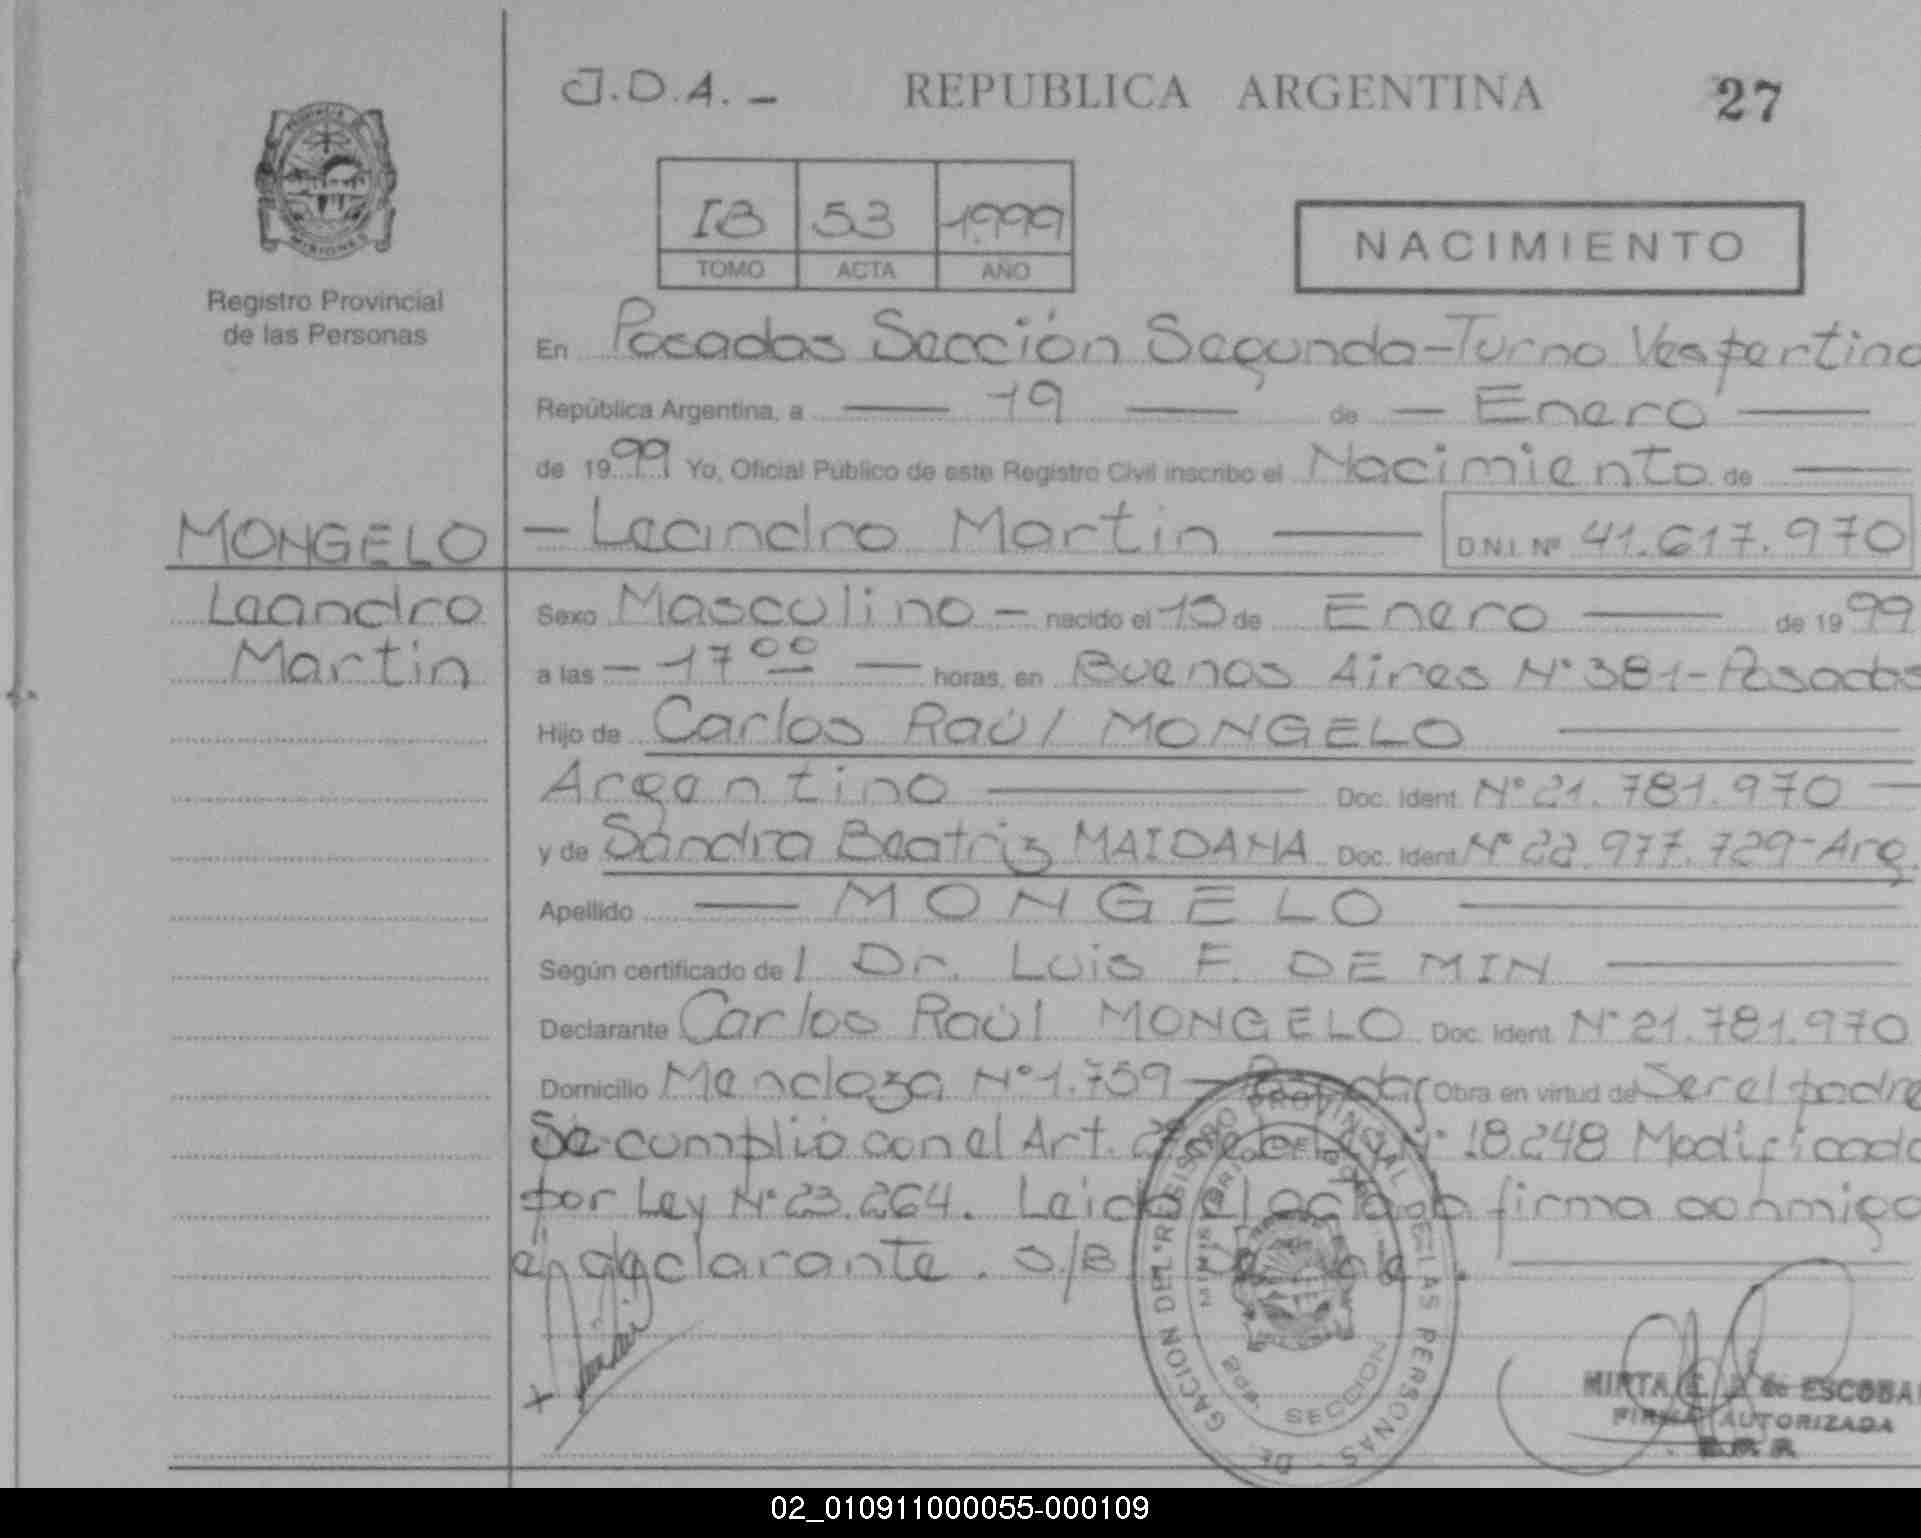 J.D.A. - REPUBLICA ARGENTINA 27
IB 53 1999
TOMO ACTA AÑO
NACIMIENTO
MISIONES
Registro Provincial
de las Personas
En Posadas Sección Segunda-Turno Vespertino
República Argentina, a — 19 — de — Enero —
de 1999 Yo, Oficial Público de este Registro Civil inscribo el Nacimiento de —
MONGELO - Leandro Martin — D.N.I. Nº 41.617.970
Leandro Sexo Masculino - nacido el 15 de Enero — de 1999
Martin a las - 17 00 — horas, en Buenos Aires Nº 381-Posadas
Hijo de Carlos Raúl MONGELO —
Argentino — Doc. Ident. Nº 21.781.970 —
y de Sandra Beatriz MAIDANA Doc. Ident. Nº 22.977.729-Arg.
Apellido — MONGELO —
Según certificado de l Dr. Luis F. DE MIN —
Declarante Carlos Raúl MONGELO Doc. Ident. Nº 21.781.970
Domicilio Mendoza Nº 1.759 - Posadas Obra en virtud de Ser el padre
Se cumplió con el Art. Ley Nº 18.248 Modificado
por Ley Nº 23.264. Leida el acta la firma conmigo
el declarante. S/B Vale.
DELEGACION DEL REGISTRO PROVINCIAL DE LAS PERSONAS
MINISTERIO DE GOB.
2da. SECCION
MIRTA de ESCOBAR
FIRMA AUTORIZADA
02_010911000055-000109